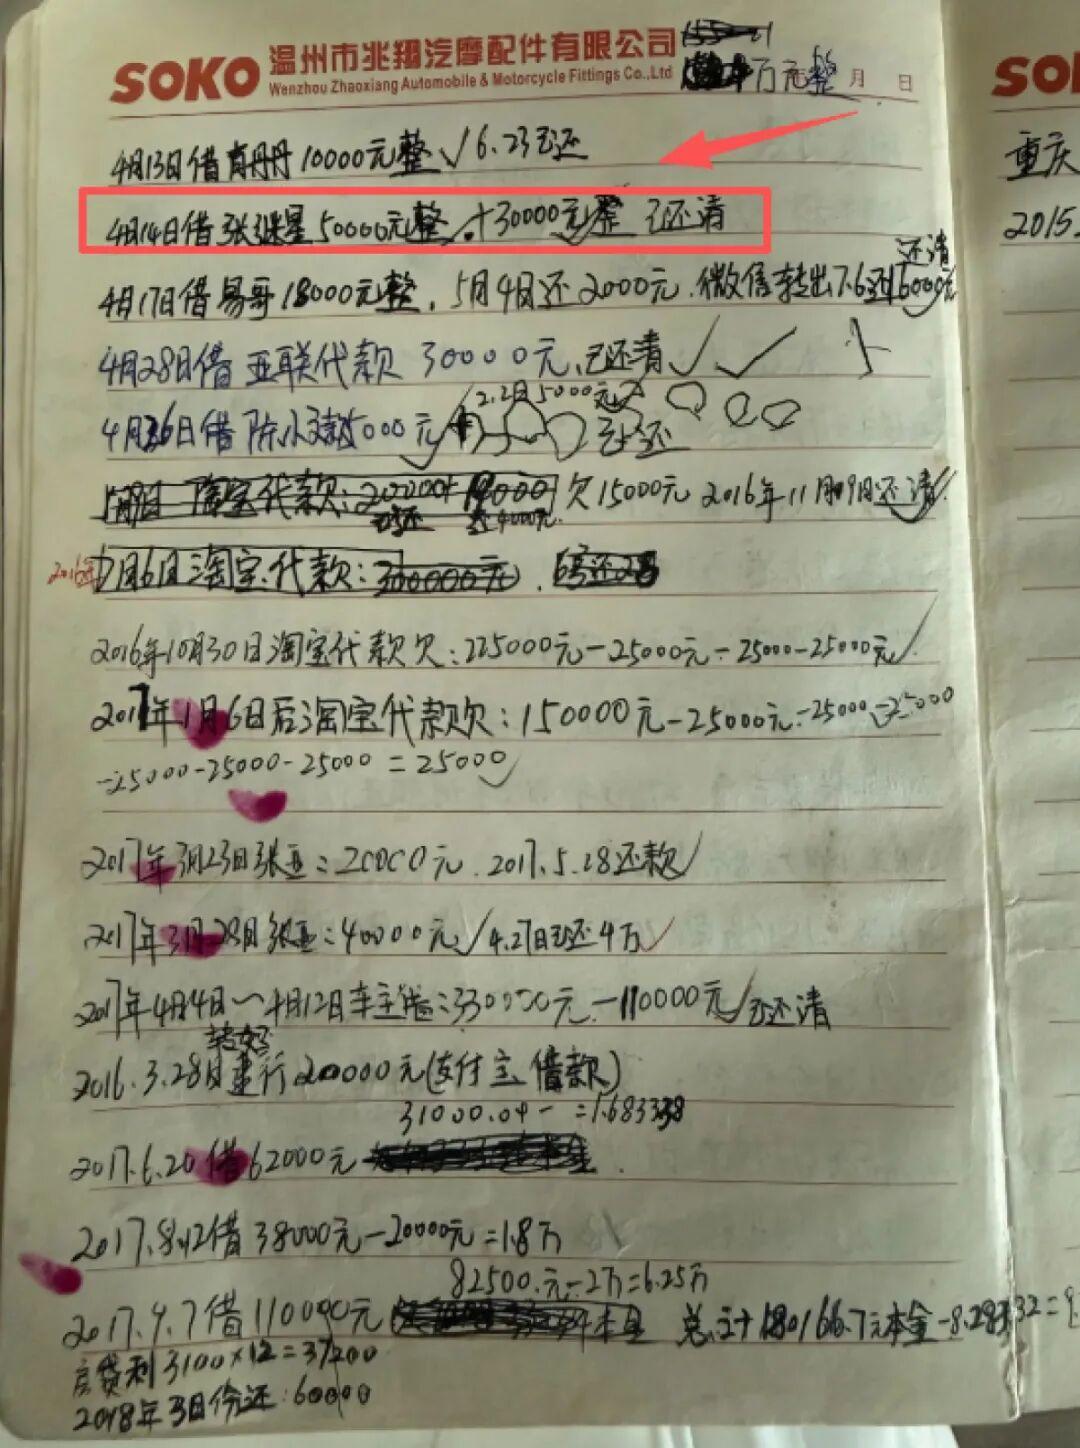 SOKO 温州市兆翔汽摩配件有限公司
Wenzhou Zhaoxiang Automobile & Motorcycle Fittings Co.,Ltd
万元整 月 日
4月13日借肖丹丹10000元整√ 6.23已还
4月14日借张继星50000元整.+30000元整 已还清
4月17日借易哥18000元整,5月4日还2000元.微信转出7.6还16000元
还清
4月28日借亚联代款 30000元,已还清√
2.2日5000元
4月26日借陈小 5000元 已还
淘宝代款:200000+ 欠15000元 2016年11月09日还清√
已还 还4000元.
2016年7月6日淘宝代款:300000元.
2016年10月30日淘宝代款欠:225000元-25000元-25000-25000元√
2017年1月6日后淘宝代款欠:150000元-25000元-25000-25000
-25000-25000-25000=25000√
2017年3月23日张亚:20000元.2017.5.28还款√
2017年3月28日张亚:40000元√4.27日已还4万√
2017年4月4日~4月12日车主借:330000元-110000元√已还清
2016.3.28日建行200000元(支付宝借款)
31000.04- =1.683338
2017.6.20借62000元
2017.8.12借38000元-20000元=1.8万
82500.元-2万=6.25万
2017.9.7借110000元 总计180166.7元本金-8.28332=9.
房贷利3100×12=37200
2018年3日份还:60000
SO
重庆
2015.